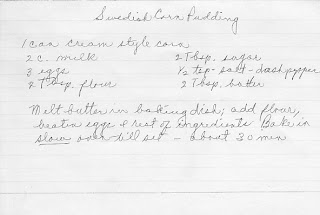 Swedish Corn Pudding
1 can cream style corn
2 c. milk 2 Tbsp. sugar
3 eggs 1/2 tsp. salt - dash pepper
2 Tbsp. flour 2 Tbsp. butter
Melt butter in baking dish; add flour,
beaten eggs & rest of ingredients. Bake in
slow oven till set - about 30 min.